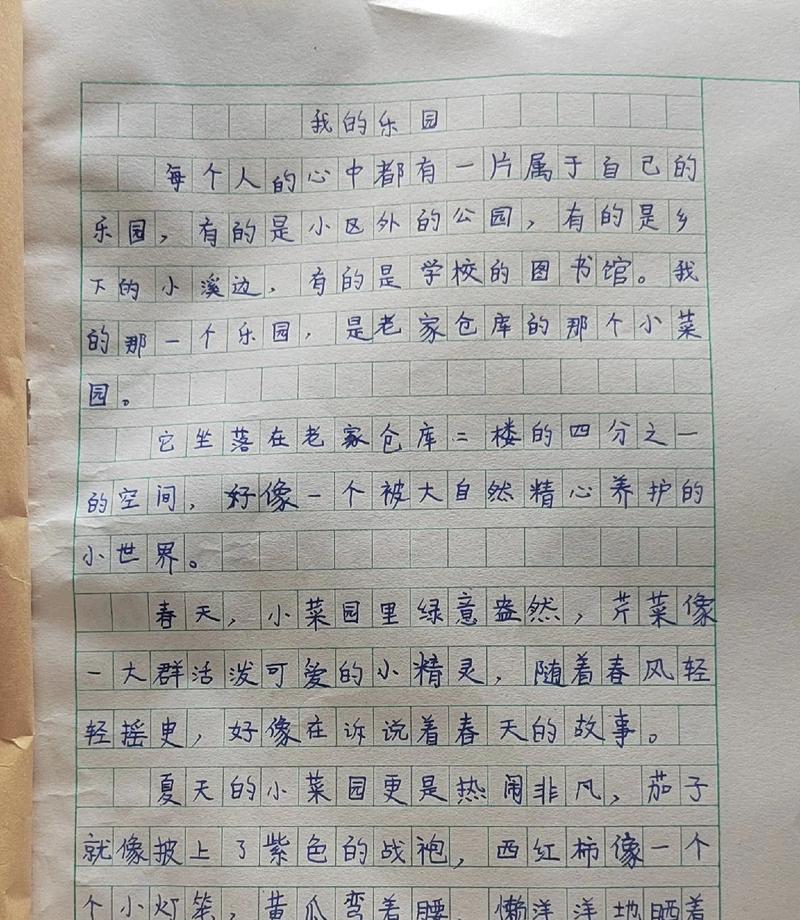 我的乐园
每个人的心中都有一片属于自己的
乐园，有的是小区外的公园，有的是乡
下的小溪边，有的是学校的图书馆。我
的那一个乐园，是老家仓库的那个小菜
园。
它坐落在老家仓库二楼的四分之一
的空间，好像一个被大自然精心养护的
小世界。
春天，小菜园里绿意盎然，芹菜像
一大群活泼可爱的小精灵，随着春风轻
轻摇曳，好像在诉说着春天的故事。
夏天的小菜园更是热闹非凡，茄子
就像披上了紫色的战袍，西红柿像一个
个小灯笼，黄瓜弯着腰，懒洋洋地晒着